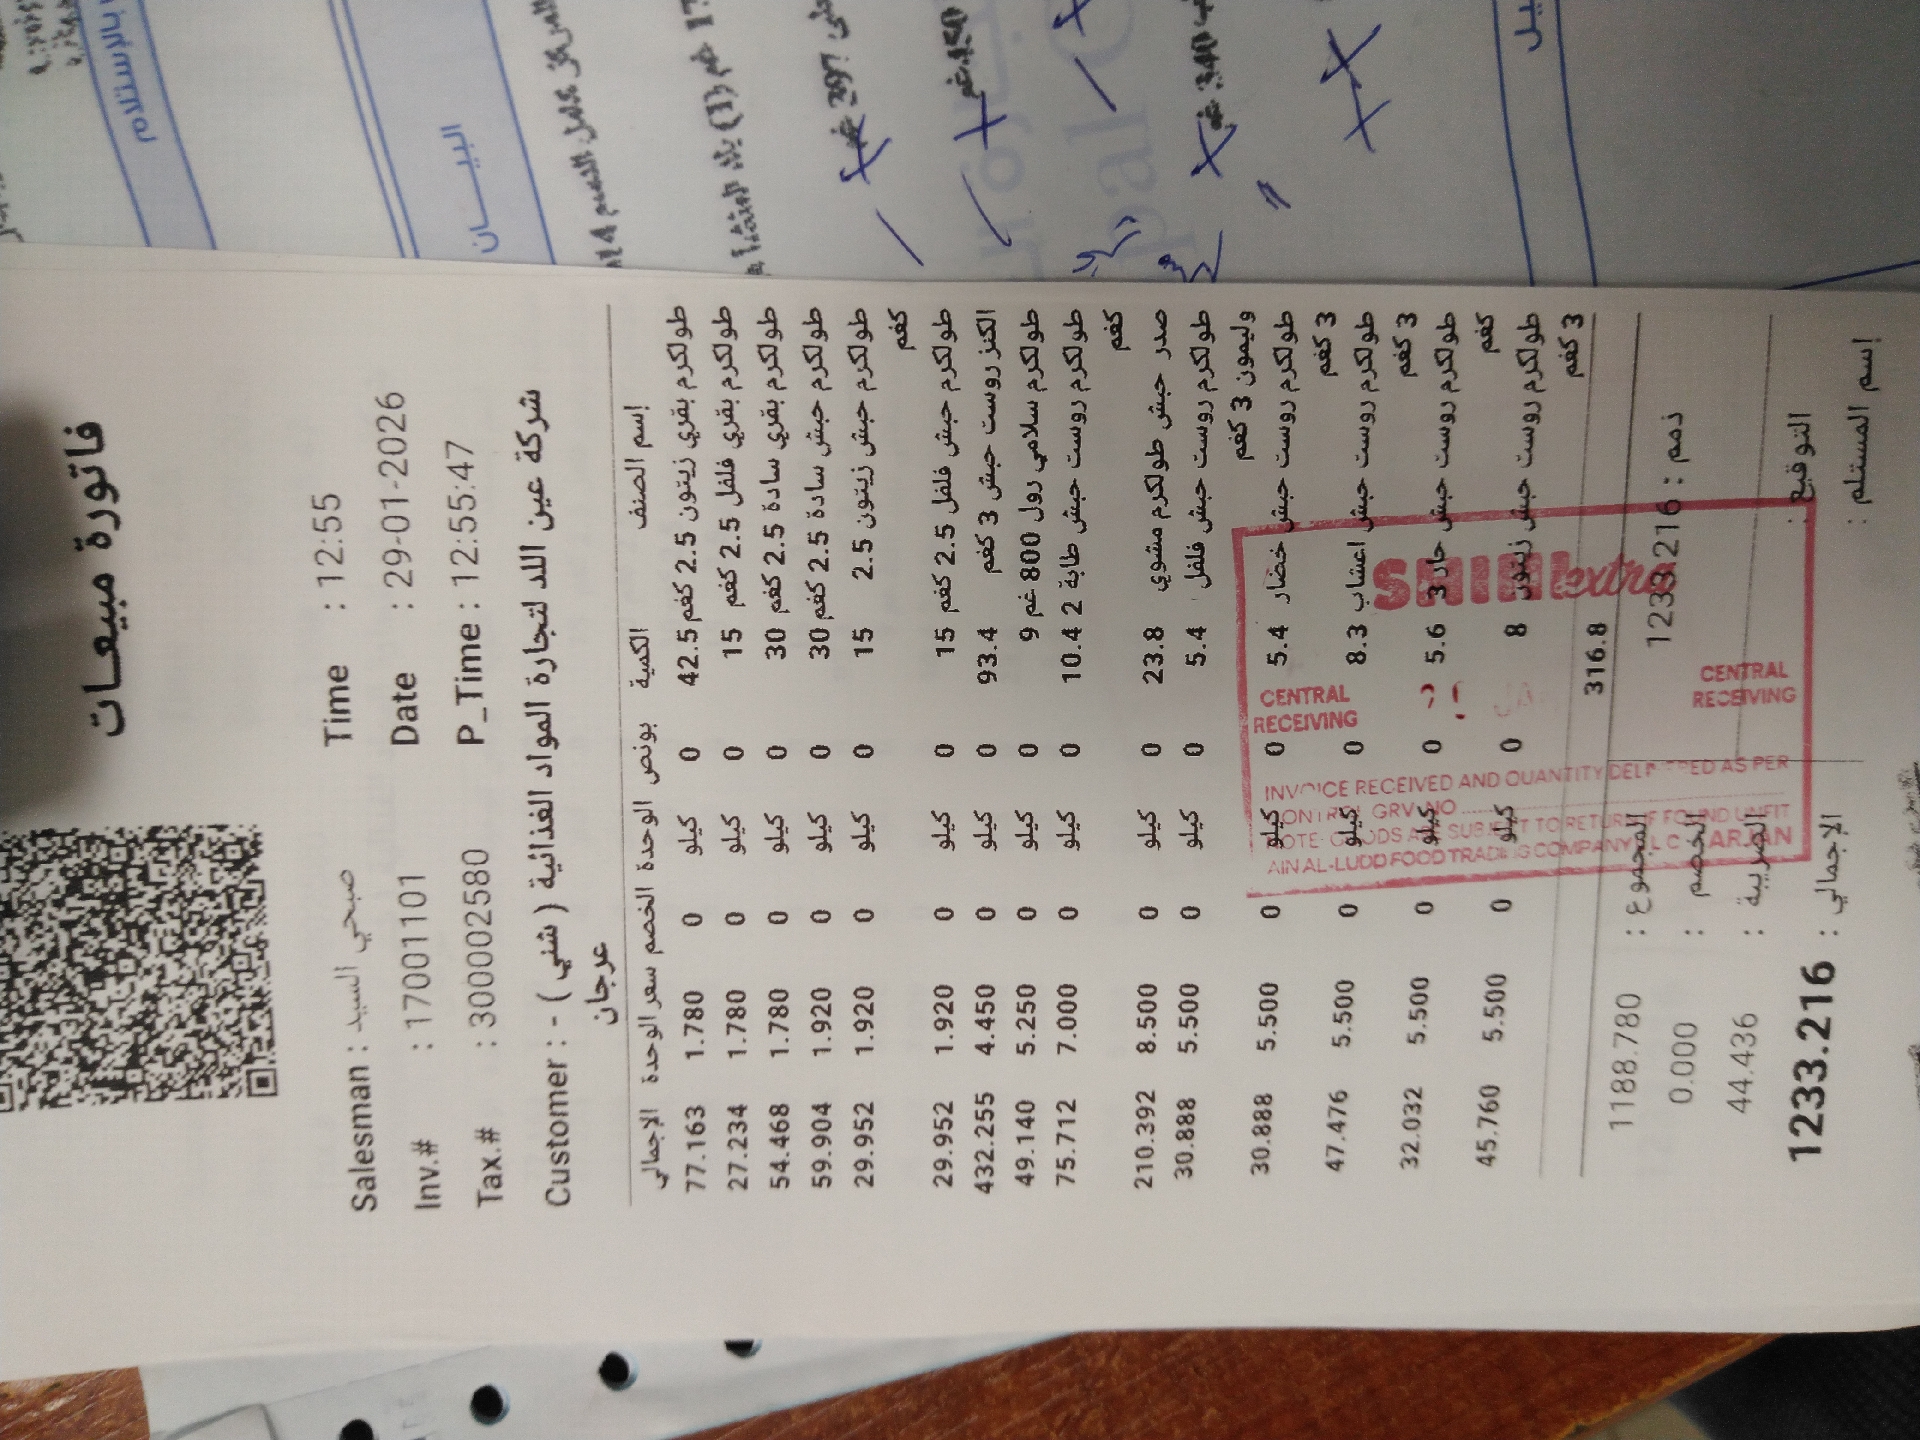 فاتورة مبيعات
Salesman : صبحي السيد Time : 12:55
Inv.# : 17001101 Date : 29-01-2026
Tax.# : 300002580 P_Time : 12:55:47
Customer : - شركة عين اللد لتجارة المواد الغذائية ( شني )
عرجان
إسم الصنف الكمية بونص الوحدة الخصم سعر الوحدة الإجمالي
طولكرم بقري زيتون 2.5 كغم 42.5 0 كيلو 0 1.780 77.163
طولكرم بقري فلفل 2.5 كغم 15 0 كيلو 0 1.780 27.234
طولكرم بقري سادة 2.5 كغم 30 0 كيلو 0 1.780 54.468
طولكرم حبش سادة 2.5 كغم 30 0 كيلو 0 1.920 59.904
طولكرم حبش زيتون 2.5 15 0 كيلو 0 1.920 29.952
كغم
طولكرم حبش فلفل 2.5 كغم 15 0 كيلو 0 1.920 29.952
الكنز روست حبش 3 كغم 93.4 0 كيلو 0 4.450 432.255
طولكرم سلامي رول 800 غم 9 0 كيلو 0 5.250 49.140
طولكرم روست حبش طابة 2 10.4 0 كيلو 0 7.000 75.712
كغم
صدر حبش طولكرم مشوي 23.8 0 كيلو 0 8.500 210.392
طولكرم روست حبش فلفل 5.4 0 كيلو 0 5.500 30.888
وليمون 3 كغم
طولكرم روست حبش خضار 5.4 0 كيلو 0 5.500 30.888
3 كغم
طولكرم روست حبش اعشاب 8.3 0 كيلو 0 5.500 47.476
3 كغم
طولكرم روست حبش حار 3 5.6 0 كيلو 0 5.500 32.032
كغم
طولكرم روست حبش زيتون 8 0 كيلو 0 5.500 45.760
3 كغم
316.8
المجموع : 1188.780
ذمم : 1233.216 الخصم : 0.000
الضريبة : 44.436
التوقيع : الإجمالي : 1233.216
إسم المستلم :
SHINI extra
CENTRAL
RECEIVING
CENTRAL
RECEIVING
INVOICE RECEIVED AND QUANTITY DELIVERED AS PER
CONTROL GRV NO
NOTE: GOODS ARE SUBJECT TO RETURN IF FOUND UNFIT
AIN AL-LUDD FOOD TRADING COMPANY L.L.C - ARJAN
بالإستلام
البيــــان